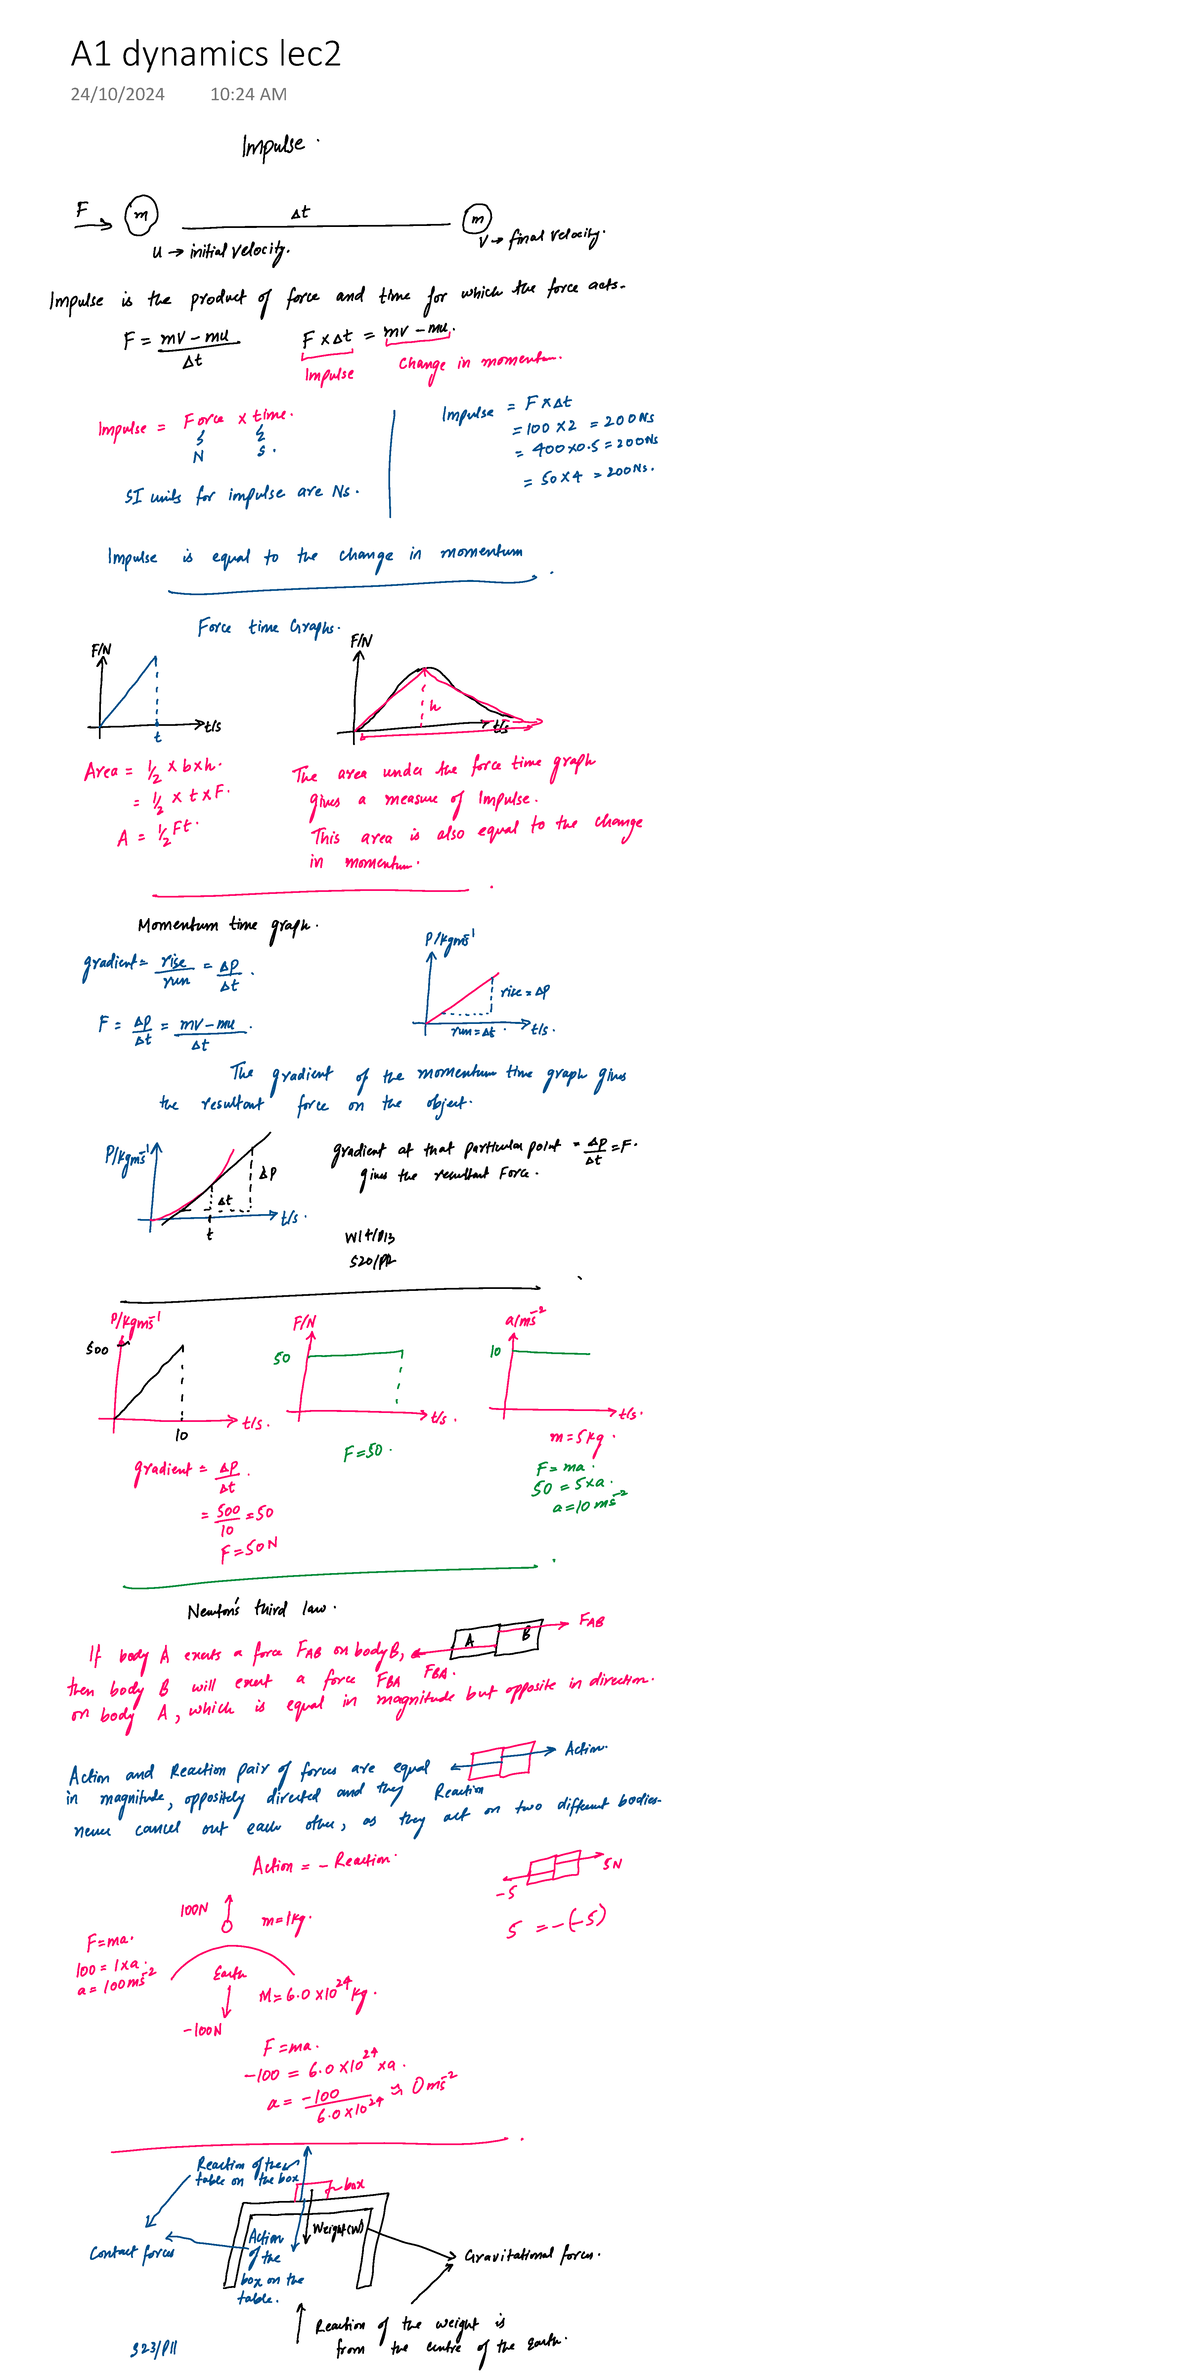 A1 dynamics lec2
24/10/2024 10:24 AM
Impulse.
F m Δt m
u → initial velocity.
v → final velocity.
Impulse is the product of force and time for which the force acts.
F = mv - mu / Δt
F × Δt = mv - mu.
Impulse
Change in momentum.
Impulse = Force × time.
N s.
SI units for impulse are Ns.
Impulse = F × Δt
= 100 × 2 = 200Ns
= 400 × 0.5 = 200Ns
= 50 × 4 = 200Ns.
Impulse is equal to the change in momentum
Force time Graphs.
F/N
t/s
t
F/N
h
t/s
Area = 1/2 × b × h.
= 1/2 × t × F.
A = 1/2 Ft.
The area under the force time graph
gives a measure of Impulse.
This area is also equal to the change
in momentum.
Momentum time graph.
gradient = rise/run = ΔP/Δt.
F = ΔP/Δt = mv - mu/Δt.
P/kgms⁻¹
rise = ΔP
run = Δt.
t/s.
The gradient of the momentum time graph gives
the resultant force on the object.
P/kgms⁻¹
ΔP
Δt
t
t/s.
gradient at that particular point = ΔP/Δt = F.
gives the resultant Force.
W14/P13
S20/P12
P/kgms⁻¹
500
10
t/s.
F/N
50
t/s.
a/ms⁻²
10
t/s.
gradient = ΔP/Δt.
= 500/10 = 50
F = 50N
F = 50.
m = 5kg.
F = ma.
50 = 5 × a.
a = 10 ms⁻²
Newton's third law.
If body A exerts a force FAB on body B,
then body B will exert a force FBA
on body A, which is equal in magnitude but opposite in direction.
A B FAB
FBA.
Action and Reaction pair of forces are equal
in magnitude, oppositely directed and they
never cancel out each other, as they act on two different bodies.
Action.
Reaction
Action = - Reaction.
-5 5N
5 = -(-5)
100N
m = 1kg.
F = ma.
100 = 1 × a.
a = 100ms⁻²
Earth
M = 6.0 × 10²⁴ kg.
-100N
F = ma.
-100 = 6.0 × 10²⁴ × a.
a = -100 / 6.0 × 10²⁴ ≈ 0 ms⁻²
Reaction of the
table on the box
box
Weight(W)
Action
of the
box on the
table.
Contact forces
Gravitational forces.
Reaction of the weight is
from the centre of the Earth.
S23/P11